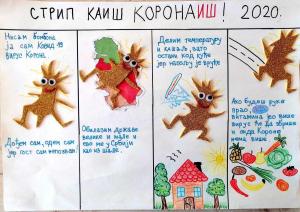 СТРИП КАИШ КОРОНАИШ! 2020.
Нисам бомбона
ја сам Ковид 19
вирус Корона.
Дођем сам, одем сам
јер гост сам непознат.
Обилазим државе
велике и мале и
ево ме у Србији
као из шале.
Делим температуру
и кашаљ, зато
остани код куће
јер напољу је вруће
Ако будеш руке
прао,
витамина јео више
вирус ће да збрише
и онда Короне
нема више